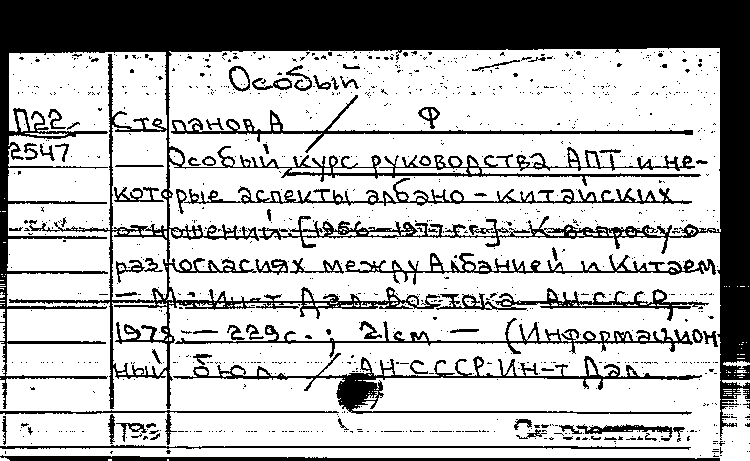 Особый
П22 Степанов, А Ф
2547 Особый курс руководства АПТ и не-
которые аспекты албано-китайских
отношений [1956-1977 гг.]: К вопросу о
разногласиях между Албанией и Китаем.
— М.: Ин-т Дал. Востока АН СССР,
1978. — 229с.; 21см — (Информацион-
ный бюл. / АН СССР. Ин-т Дал.
См. след.